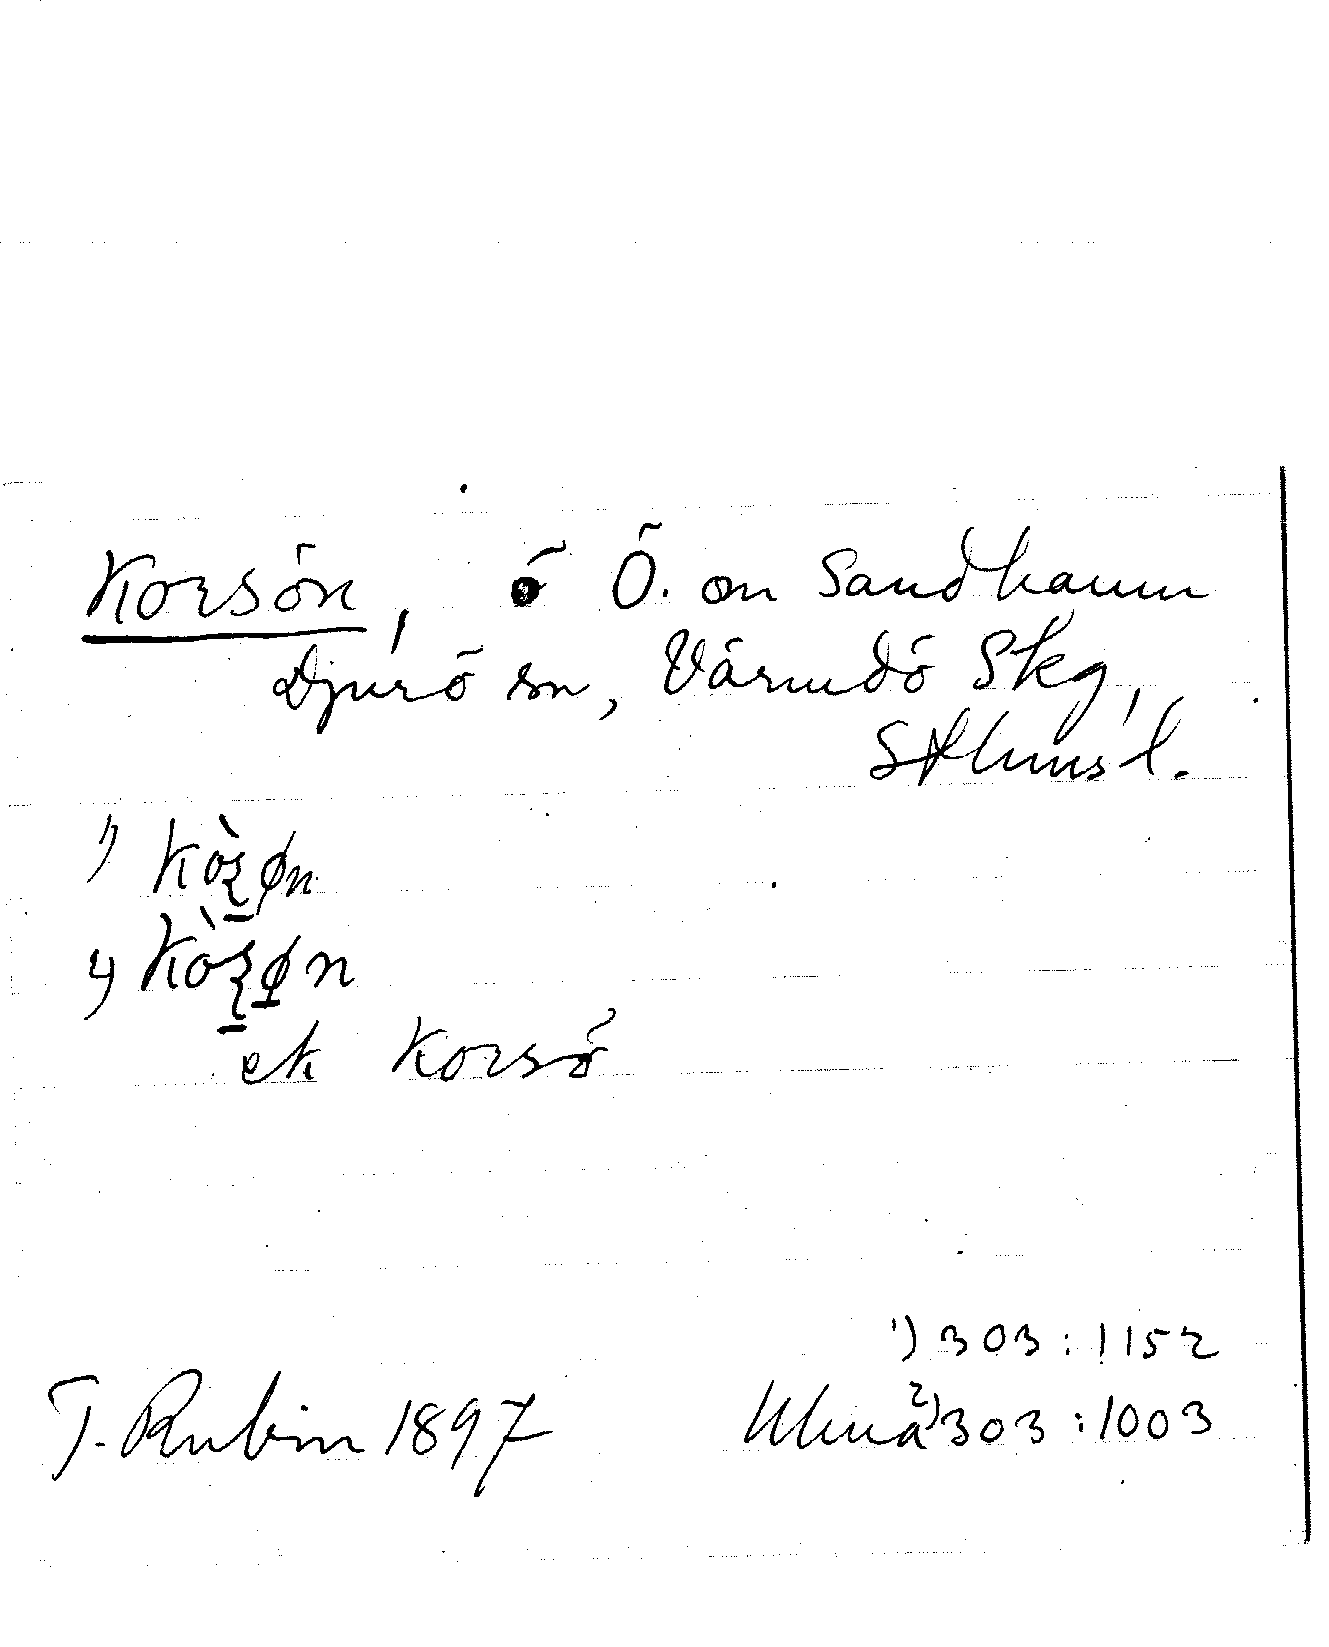 Korsön, ö Ö. om Sandhamn
Djurö sn, Värmdö Skg,
Sthms l.
1) Kòꝣøn
2) Kòꝣøn
ek Korsö
1) 303:1152
T. Rubin 1897 2) 303:1003